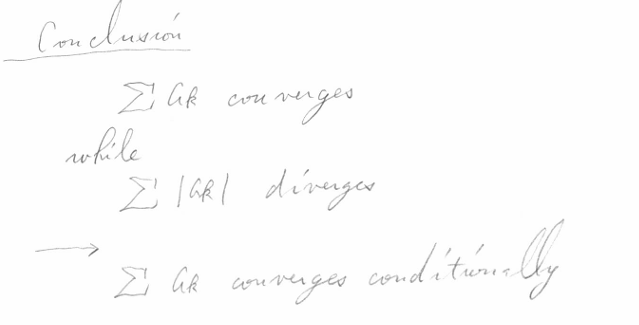 Conclusion
∑ ak converges
while
∑ |ak| diverges
→
∑ ak converges conditionally